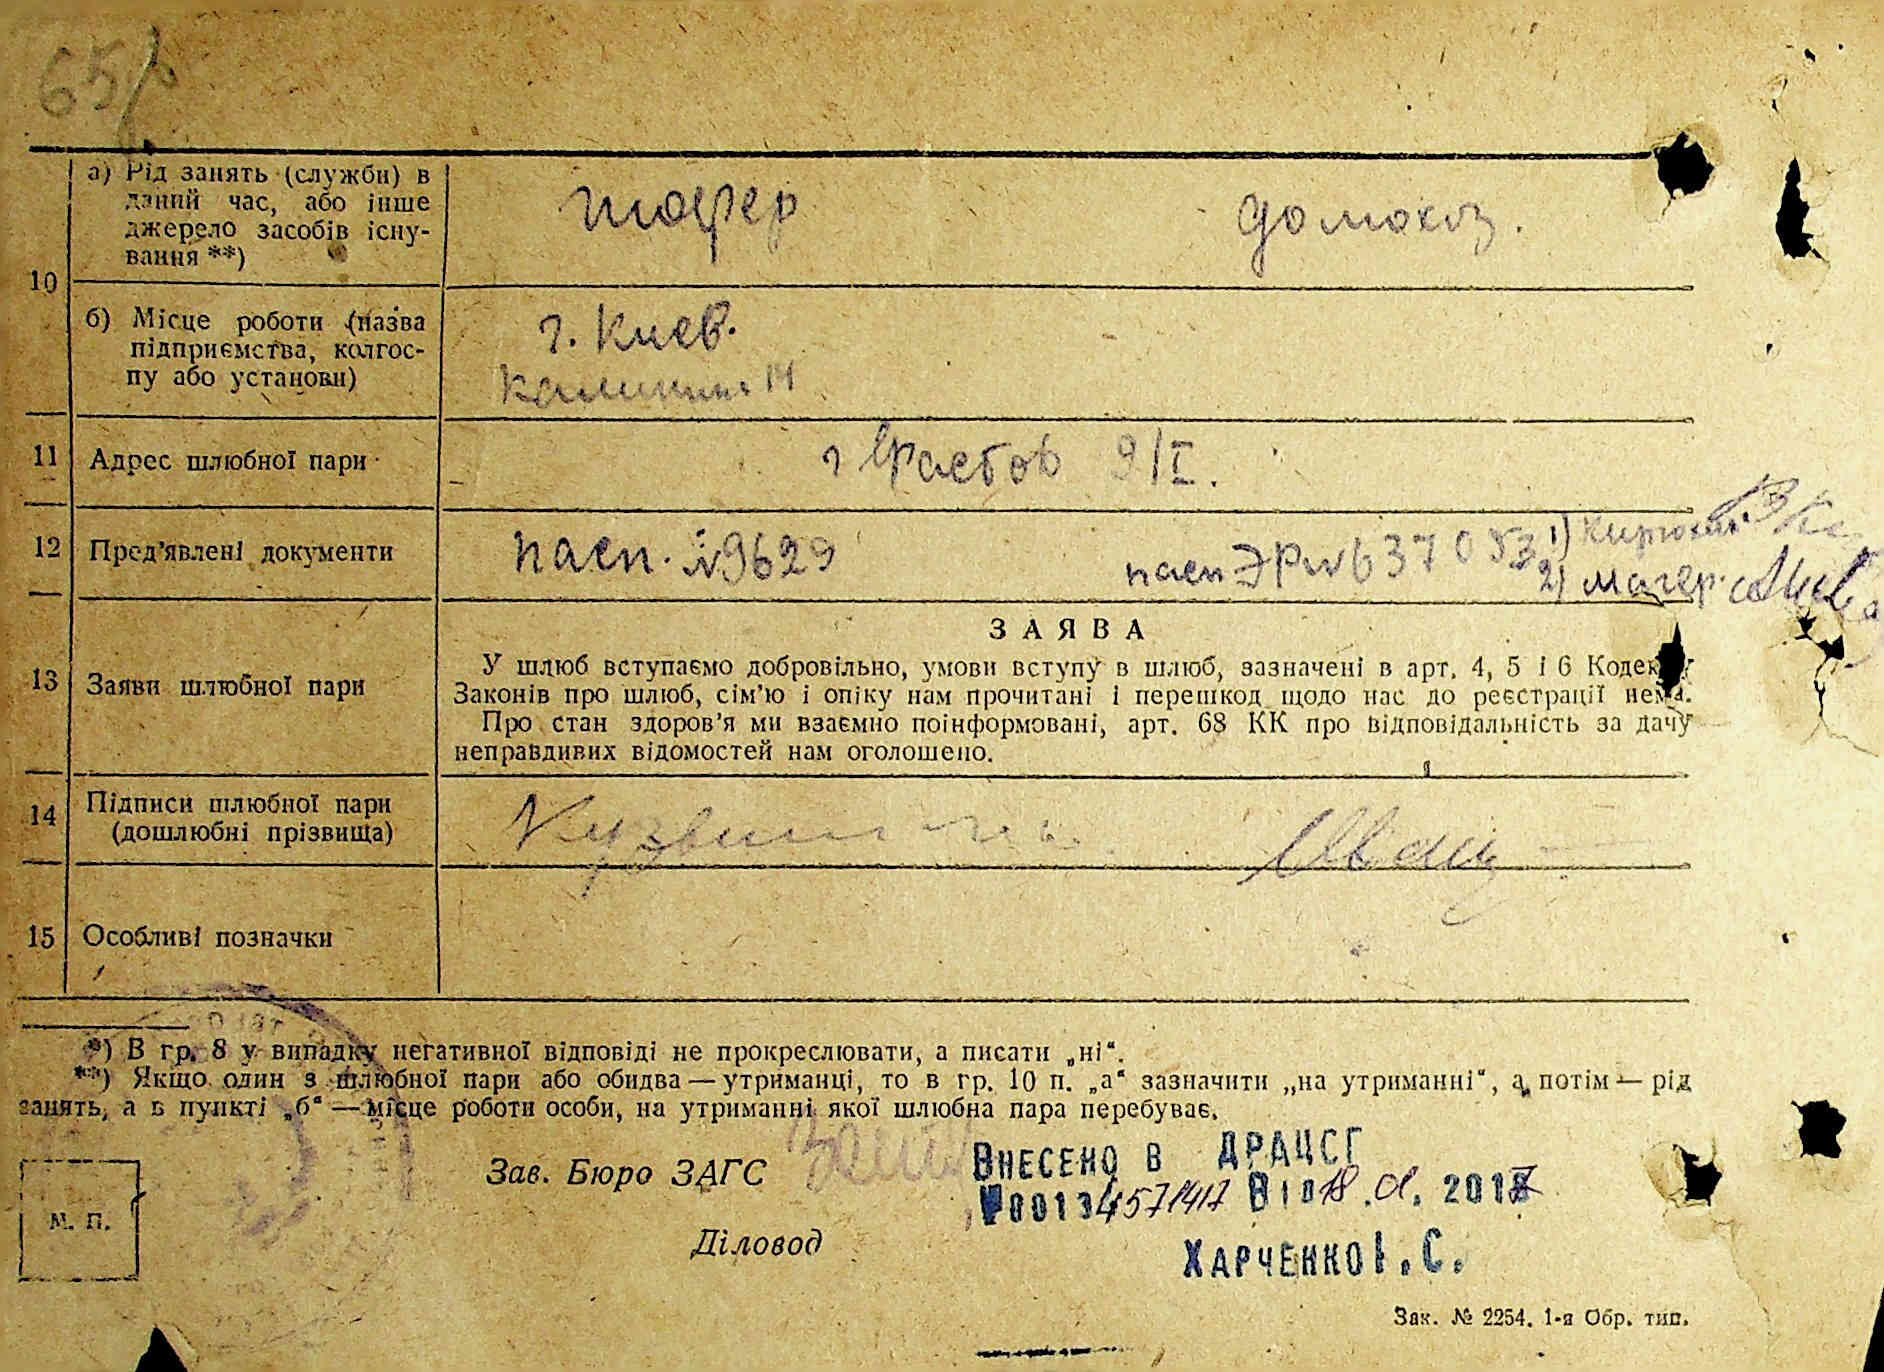 65
10 а) Рід занять (служби) в даний час, або інше джерело засобів існування **) шофер домохоз.
б) Місце роботи (назва підприємства, колгоспу або установи) г. Киев.
Калинина 14
11 Адрес шлюбної пари г Фастов 9/I.
12 Пред'явлені документи пасп. №9629 пасп ЭР № 637053 1)
2)
ЗАЯВА
13 Заяви шлюбної пари
У шлюб вступаємо добровільно, умови вступу в шлюб, зазначені в арт. 4, 5 і 6 Кодексу
Законів про шлюб, сім'ю і опіку нам прочитані і перешкод щодо нас до реєстрації нема.
Про стан здоров'я ми взаємно поінформовані, арт. 68 КК про відповідальність за дачу
неправдивих відомостей нам оголошено.
14 Підписи шлюбної пари
(дошлюбні прізвища)
15 Особливі позначки
*) В гр. 8 у випадку негативної відповіді не прокреслювати, а писати „ні“.
**) Якщо один з шлюбної пари або обидва — утриманці, то в гр. 10 п. „а“ зазначити „на утриманні“, а потім — рід
занять, а в пункті „б“ — місце роботи особи, на утриманні якої шлюбна пара перебуває.
Зав. Бюро ЗАГС
Внесено в ДРАЦСГ
№00134571417 від 18.01.2017
М. П.
Діловод
Харченко І. С.
Зак. № 2254. 1-я Обр. тип.